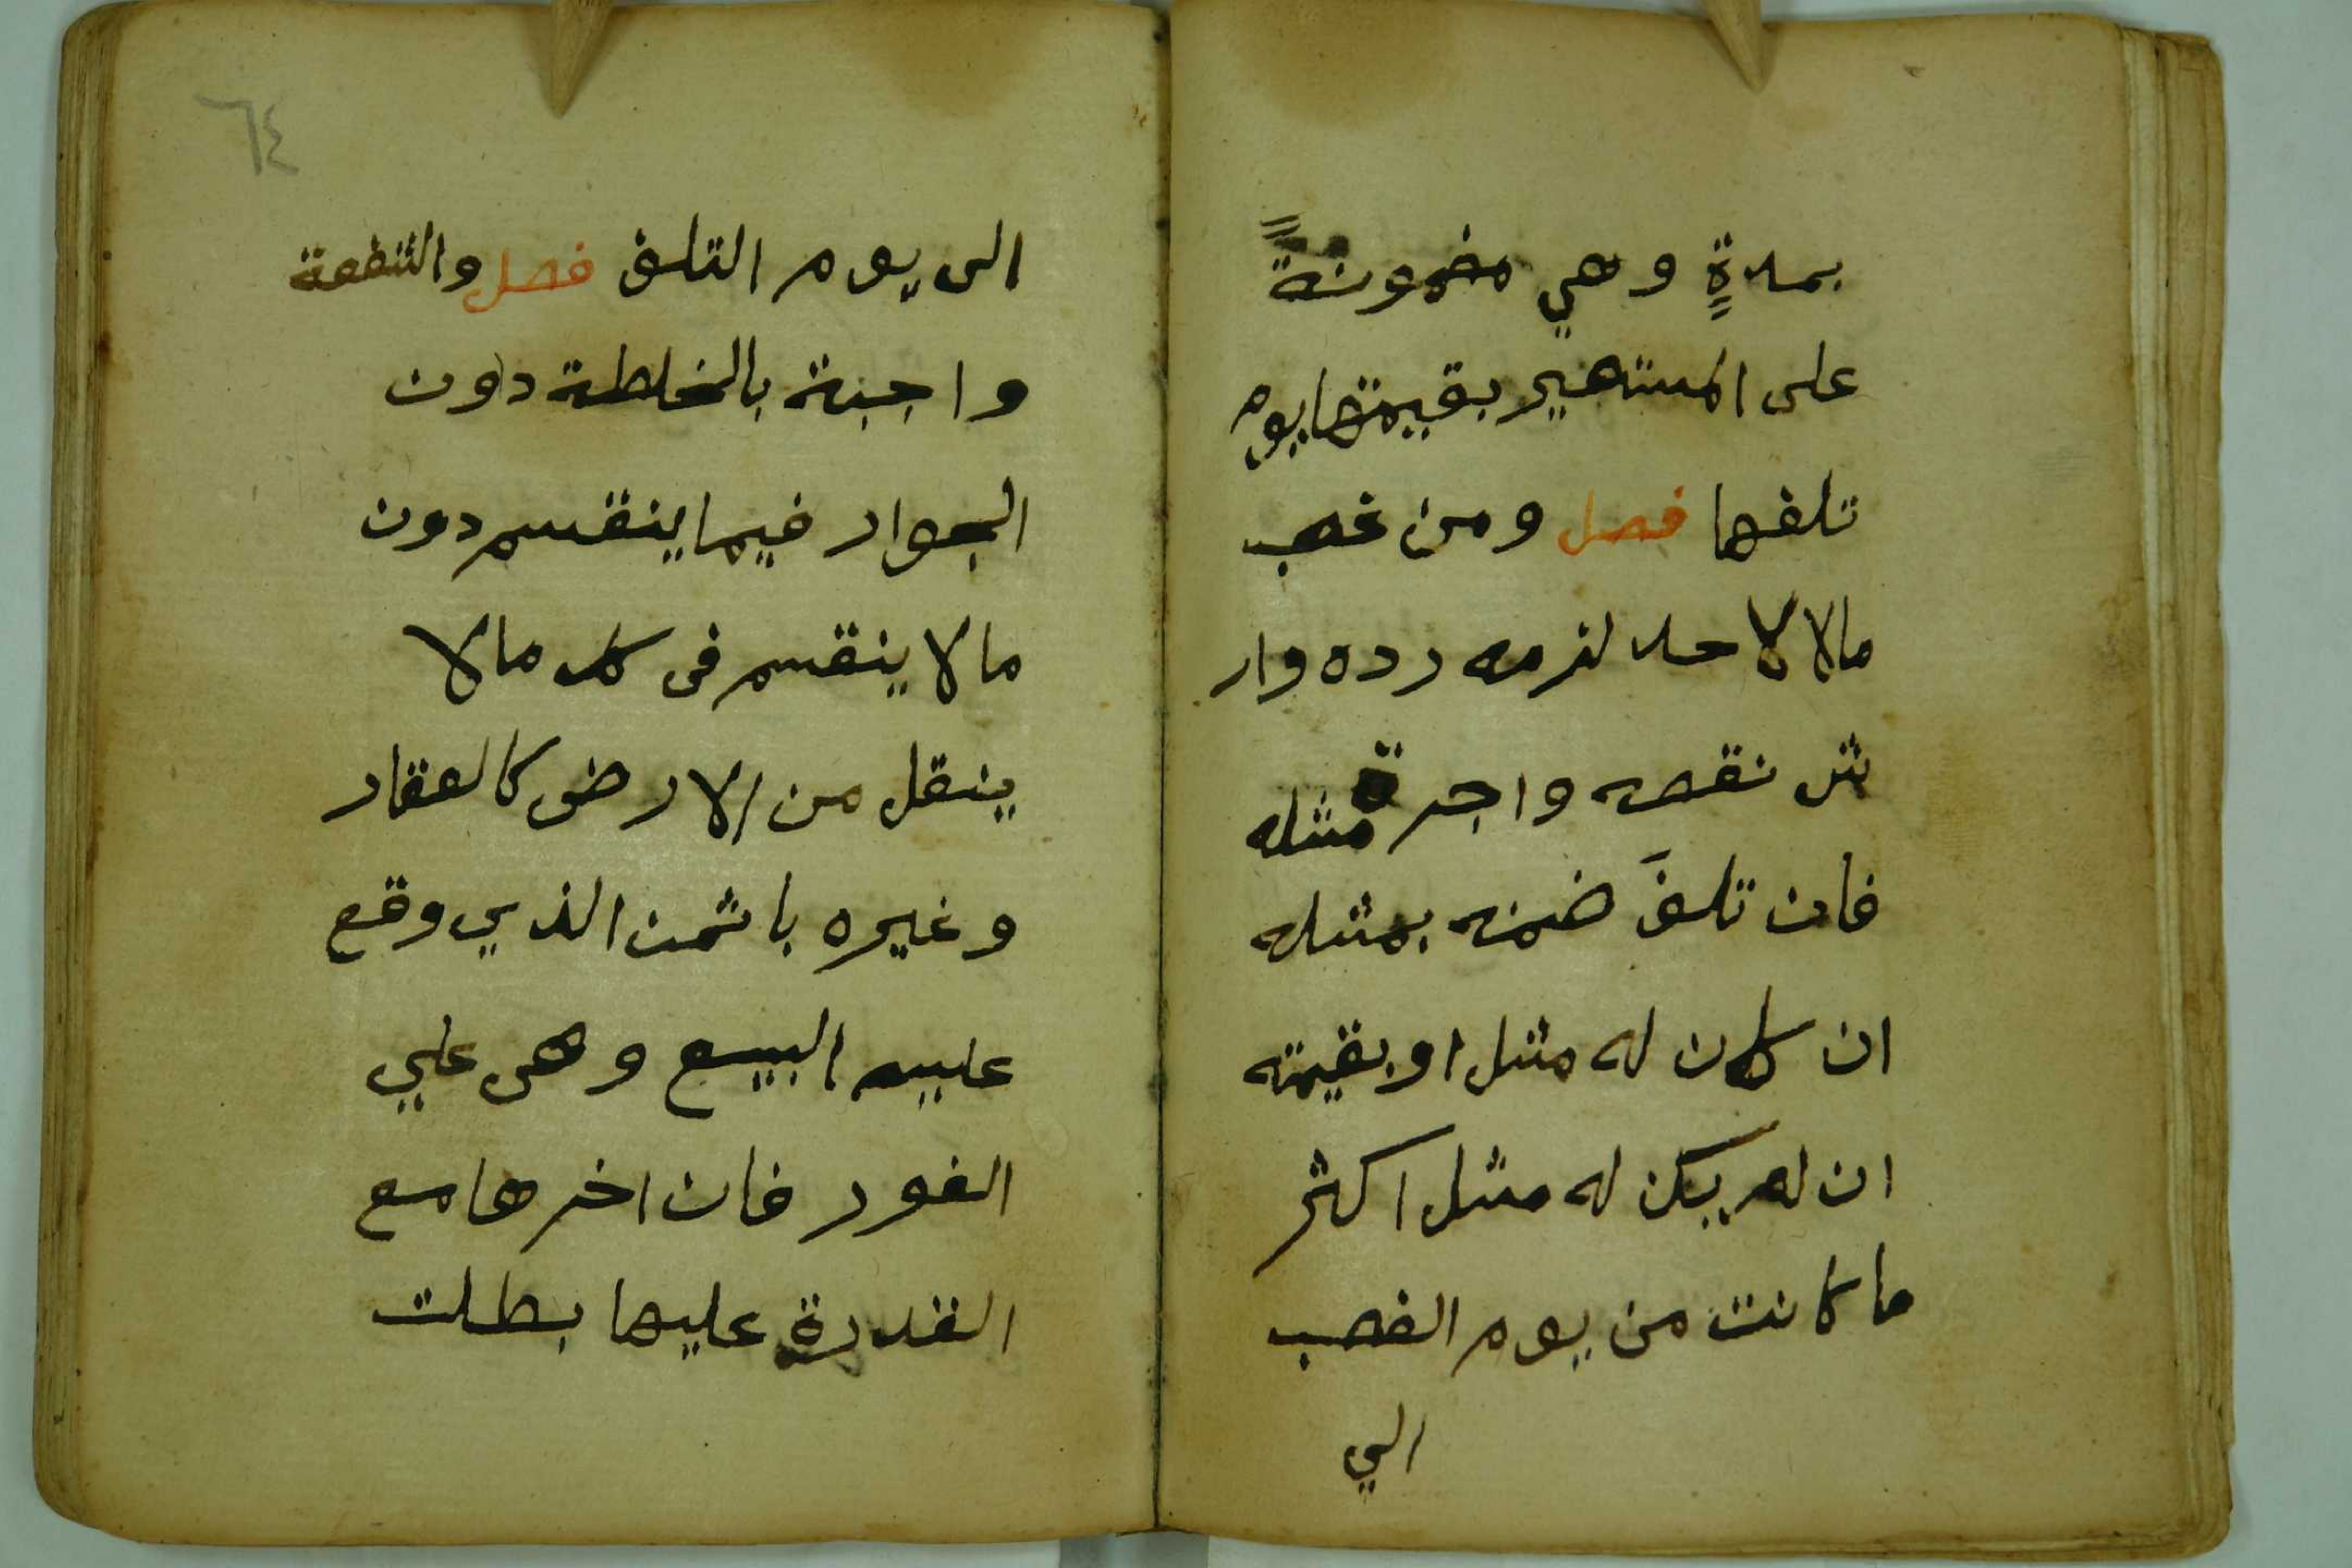 بمدةٍ وهي مضمونةً
على المستعير بقيمتها يوم
تلفها فصل ومن غصب
مالا لاحد لزمه رده وار
ش نقصه واجرة مثله
فان تلفَ ضمنه بمثله
ان كان له مثل او بقيمته
ان لم يكن له مثل اكثر
ما كانت من يوم الغصب
الي
٦٤
الى يوم التلف فصل والشفعة
واجبة بالخلطة دون
الجوار فيما ينقسم دون
ما لا ينقسم فى كل ما لا
ينقل من الارض كالعقار
وغيره باثمن الذي وقع
عليه البيع وهى علي
الفور فان اخرها مع
القدرة عليها بطلت